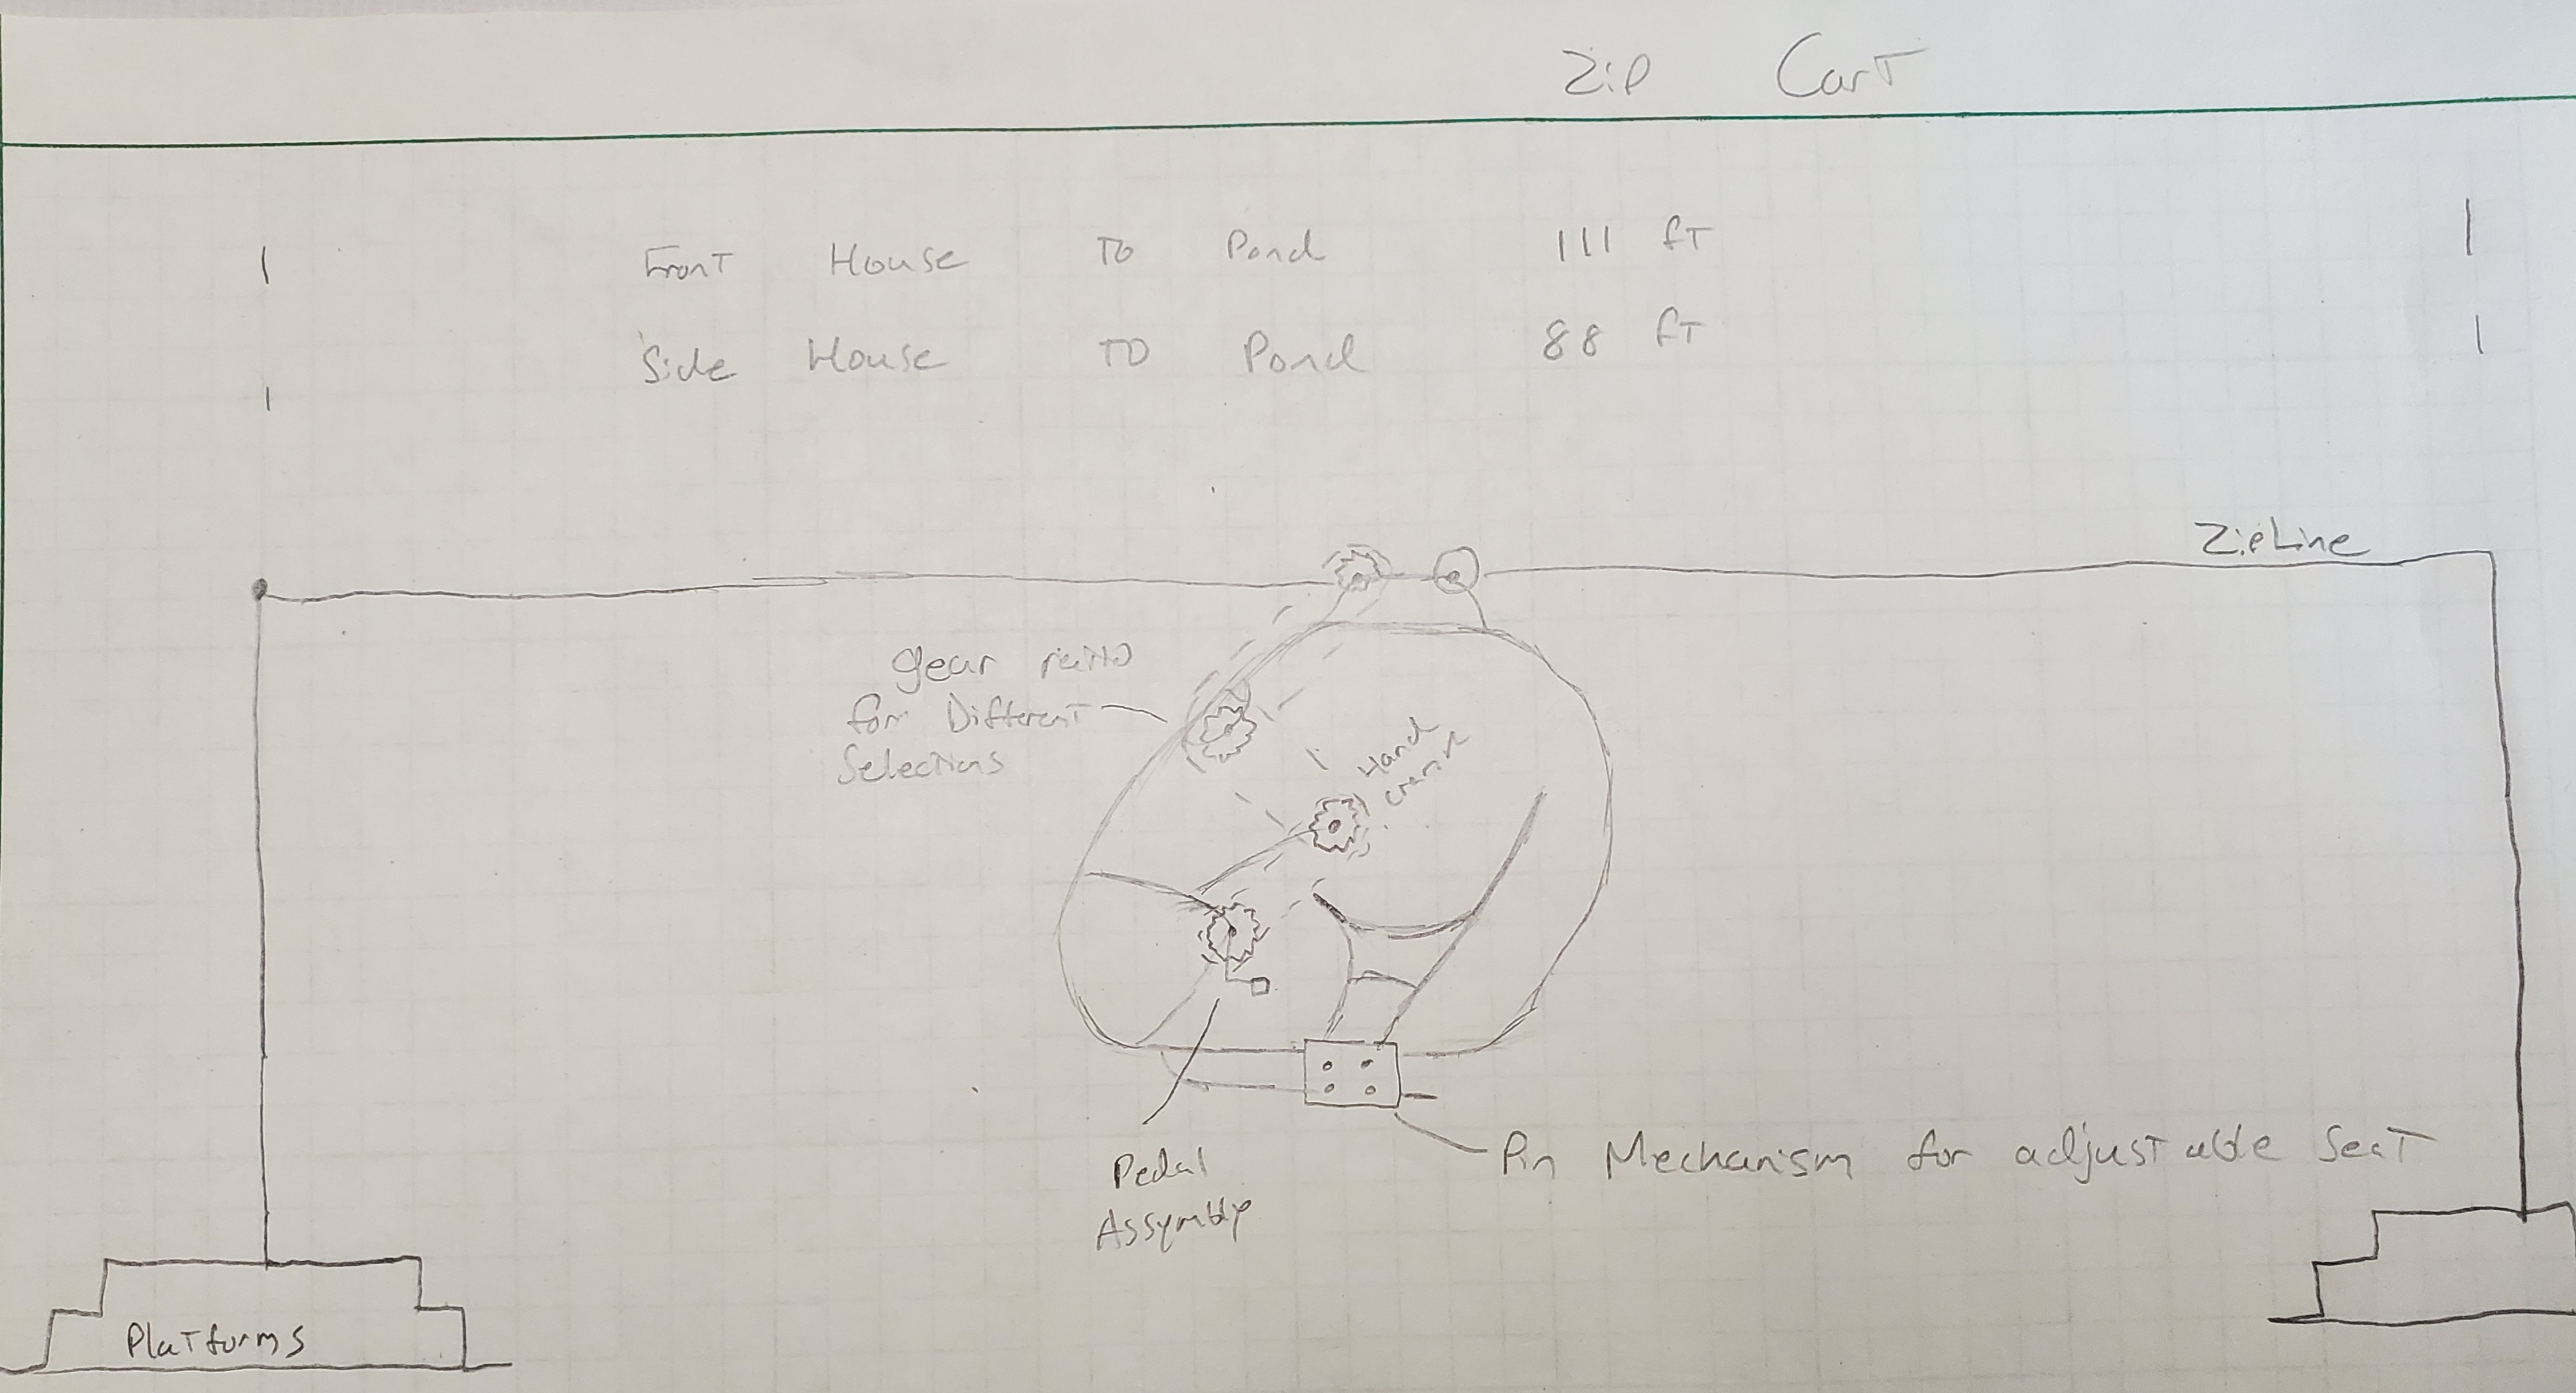 Zip Cart
Front House To Pond 111 ft
Side House TO Pond 88 ft
ZipLine
gear ratio
for Different
Selections
Hand
crank
Pedal
Assymbly
Pin Mechanism for adjustable Seat
Platforms